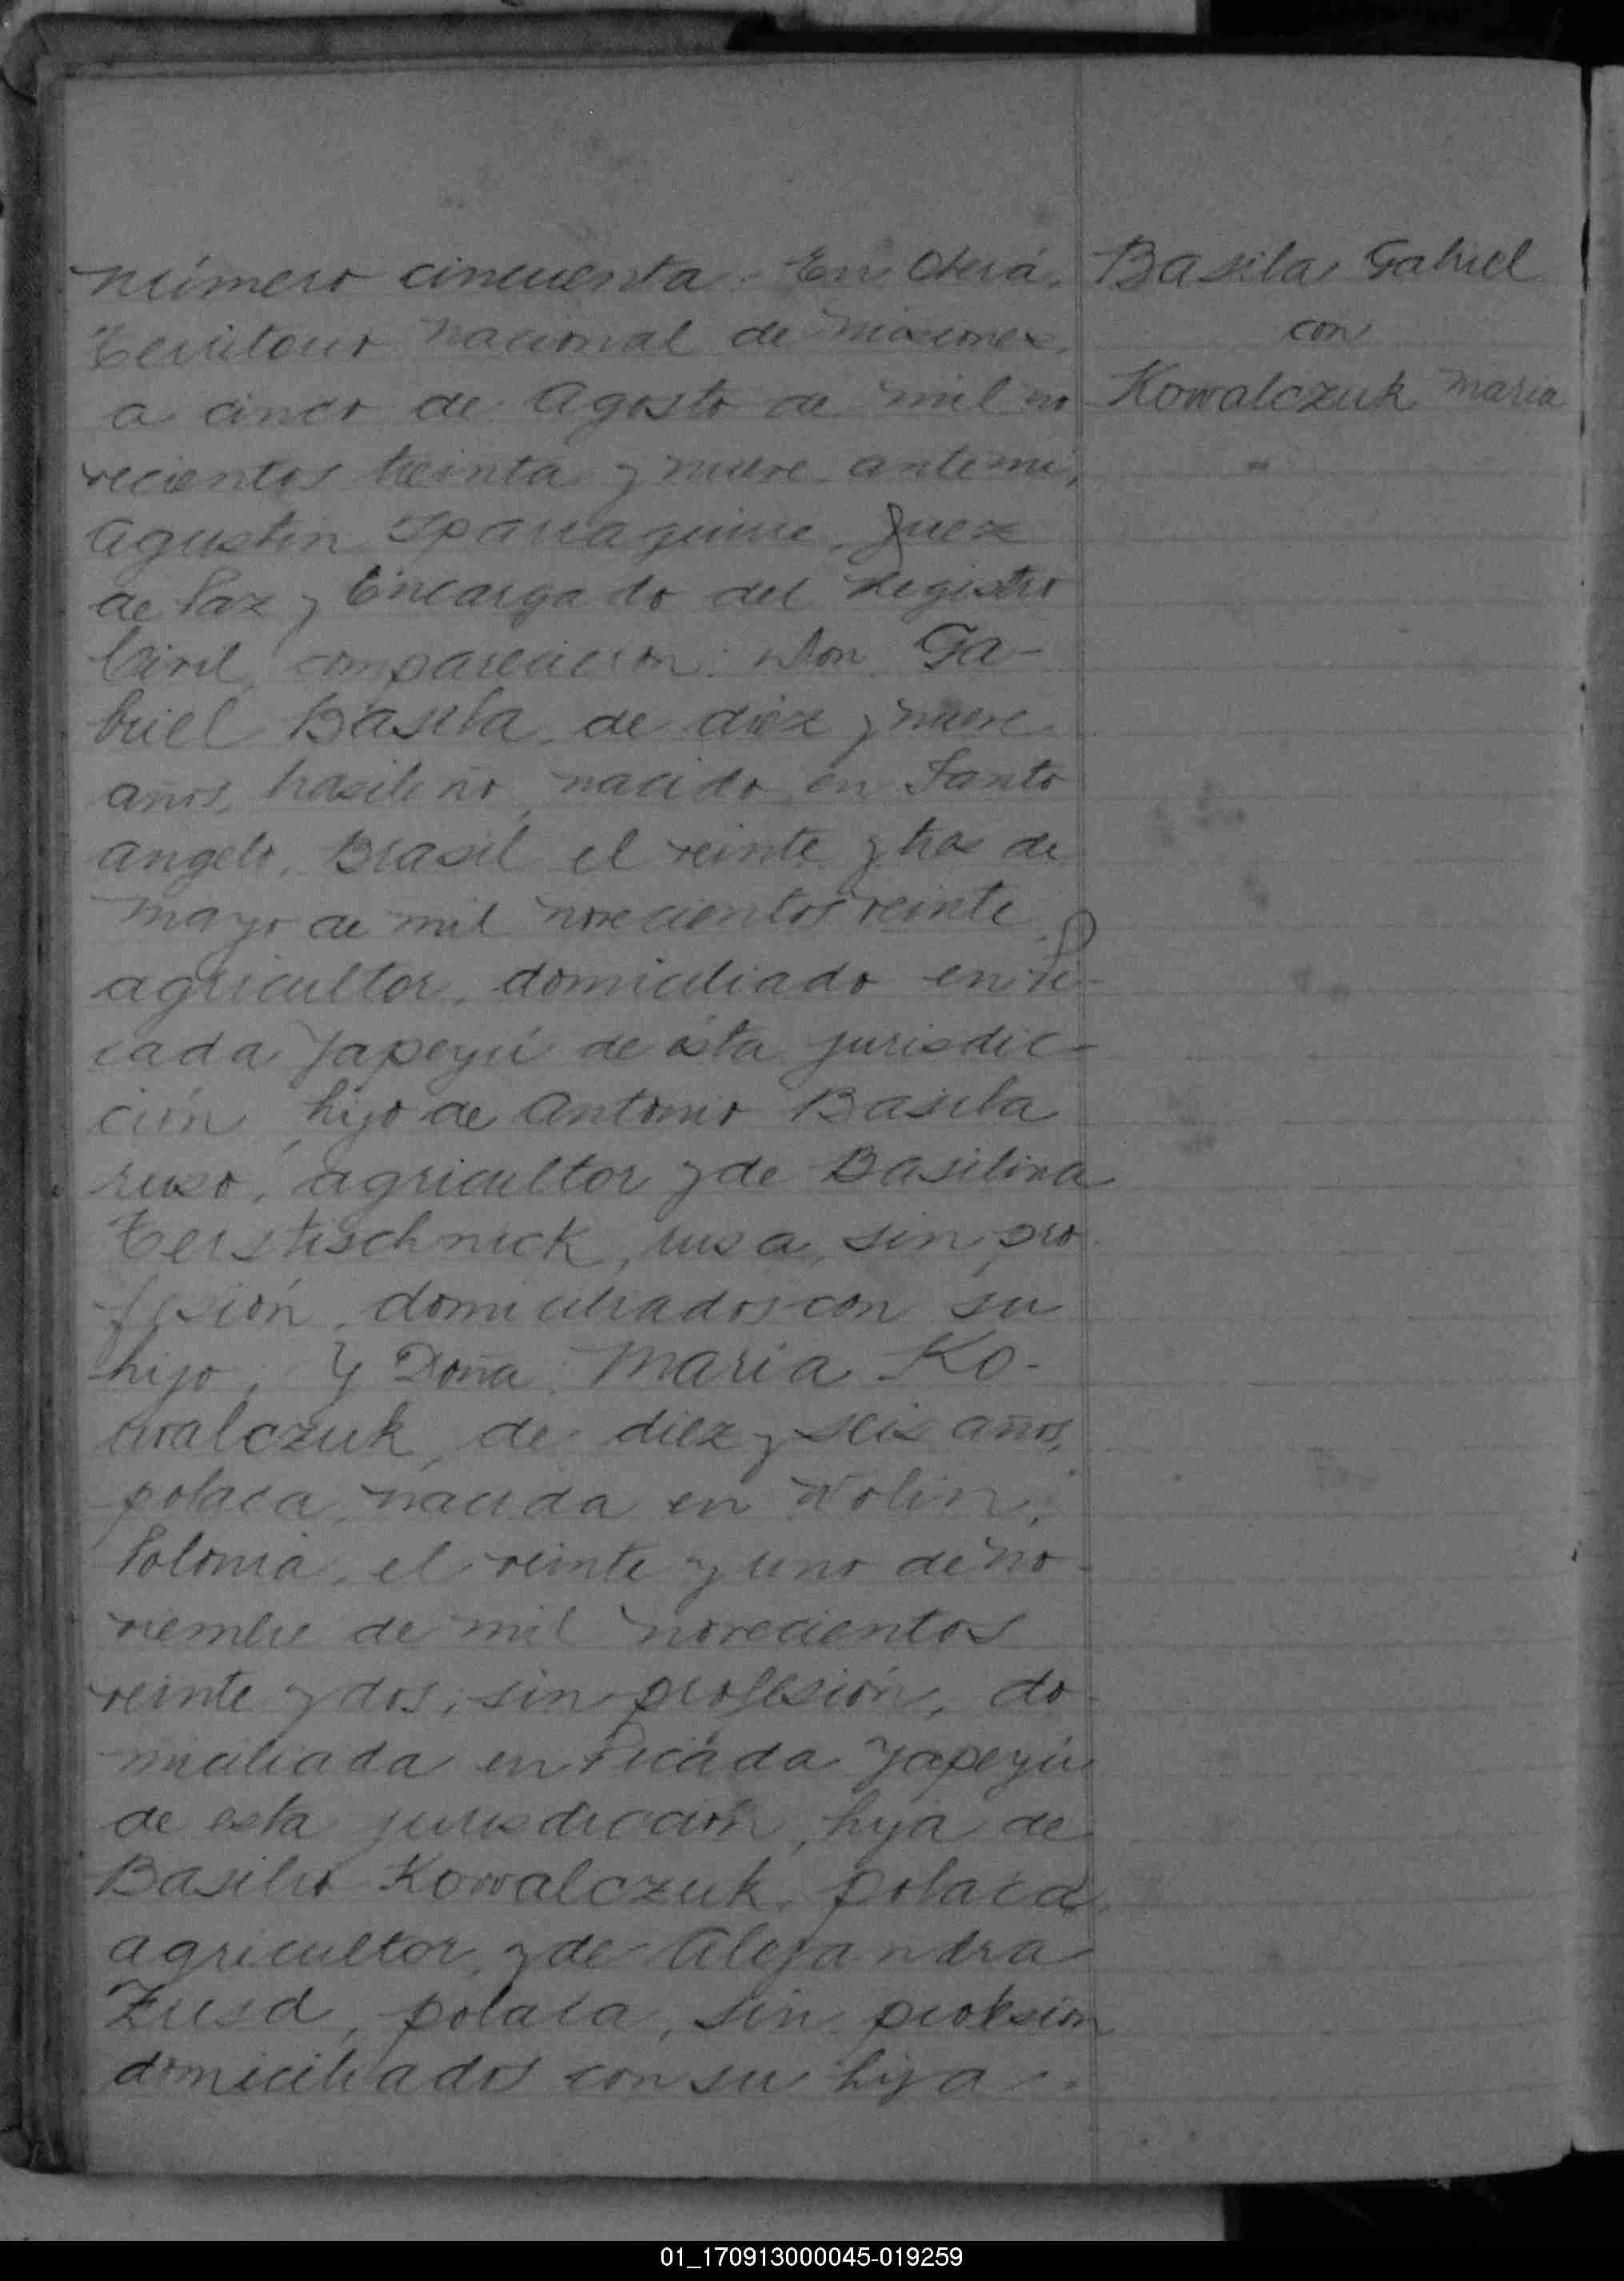 Número cincuenta. En Oberá,
Territorio Nacional de Misiones,
a cinco de Agosto de mil no
vecientos treinta y nueve ante mi,
Agustin Iparraguirre, Juez
de Paz y Encargado del Registro
Civil, comparecieron: Don Ga-
briel Basila, de diez y nueve
años, brasileño, nacido en Santo
Angelo, Brasil el veinte y tres de
Mayo de mil novecientos veinte
agricultor, domiciliado en Pi-
cada Yapeyú de ésta jurisdic-
ción, hijo de Antonio Basila
ruso, agricultor y de Basilina
rusa, sin pro
fesión, domiciliados con su
hijo, Y Doña Maria Ko-
walczuk, de diez y seis años,
polaca, nacida en Wolin,
Polonia, el veinte y uno de No-
viembre de mil novecientos
veinte y dos, sin profesión, do
miciliada en Picada Yapeyú
de esta jurisdicción, hija de
Basilio Kowalczuk, polaco,
agricultor, y de Alejandra
polaca, sin profesion
domiciliados con su hija
Basila Gabriel
con
Kowalczuk Maria
01_170913000045-019259